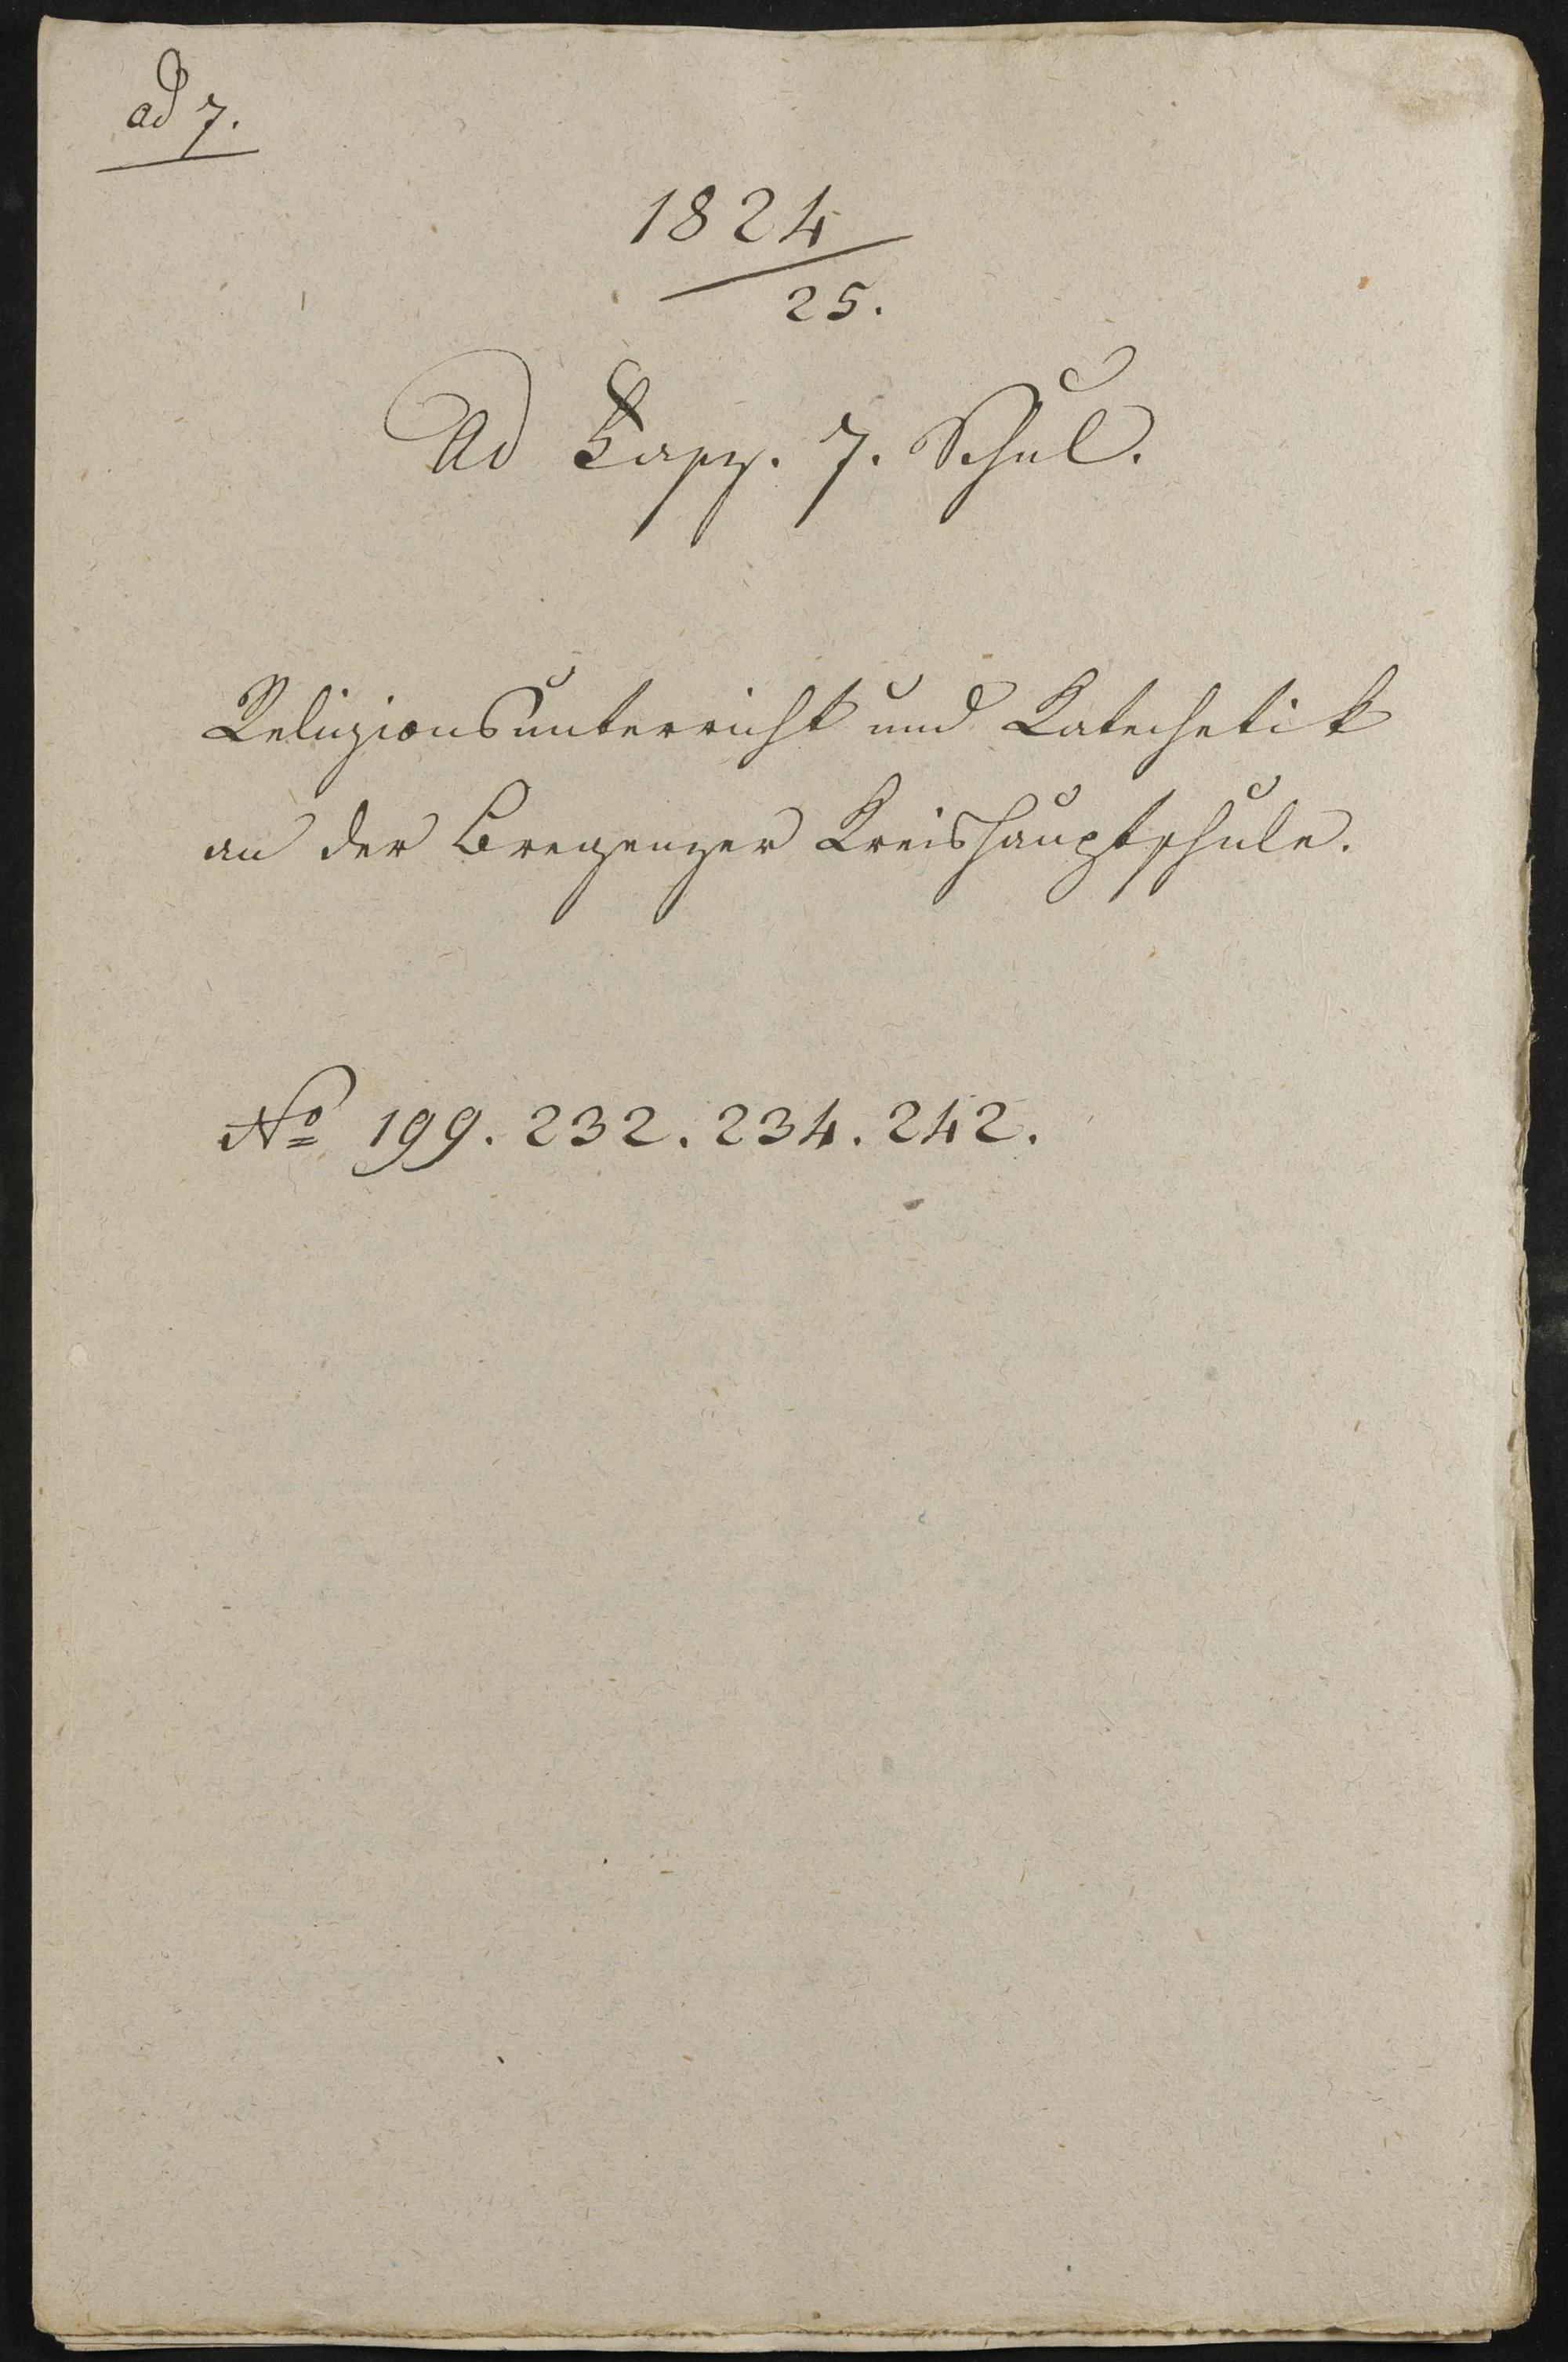 ad 7.
1824
25.
Ad Fasz. 7. Schul.
Religionsunterricht und Katechetik
an der Bregenzer Kreishauptschule.
No 199. 232. 234. 242.